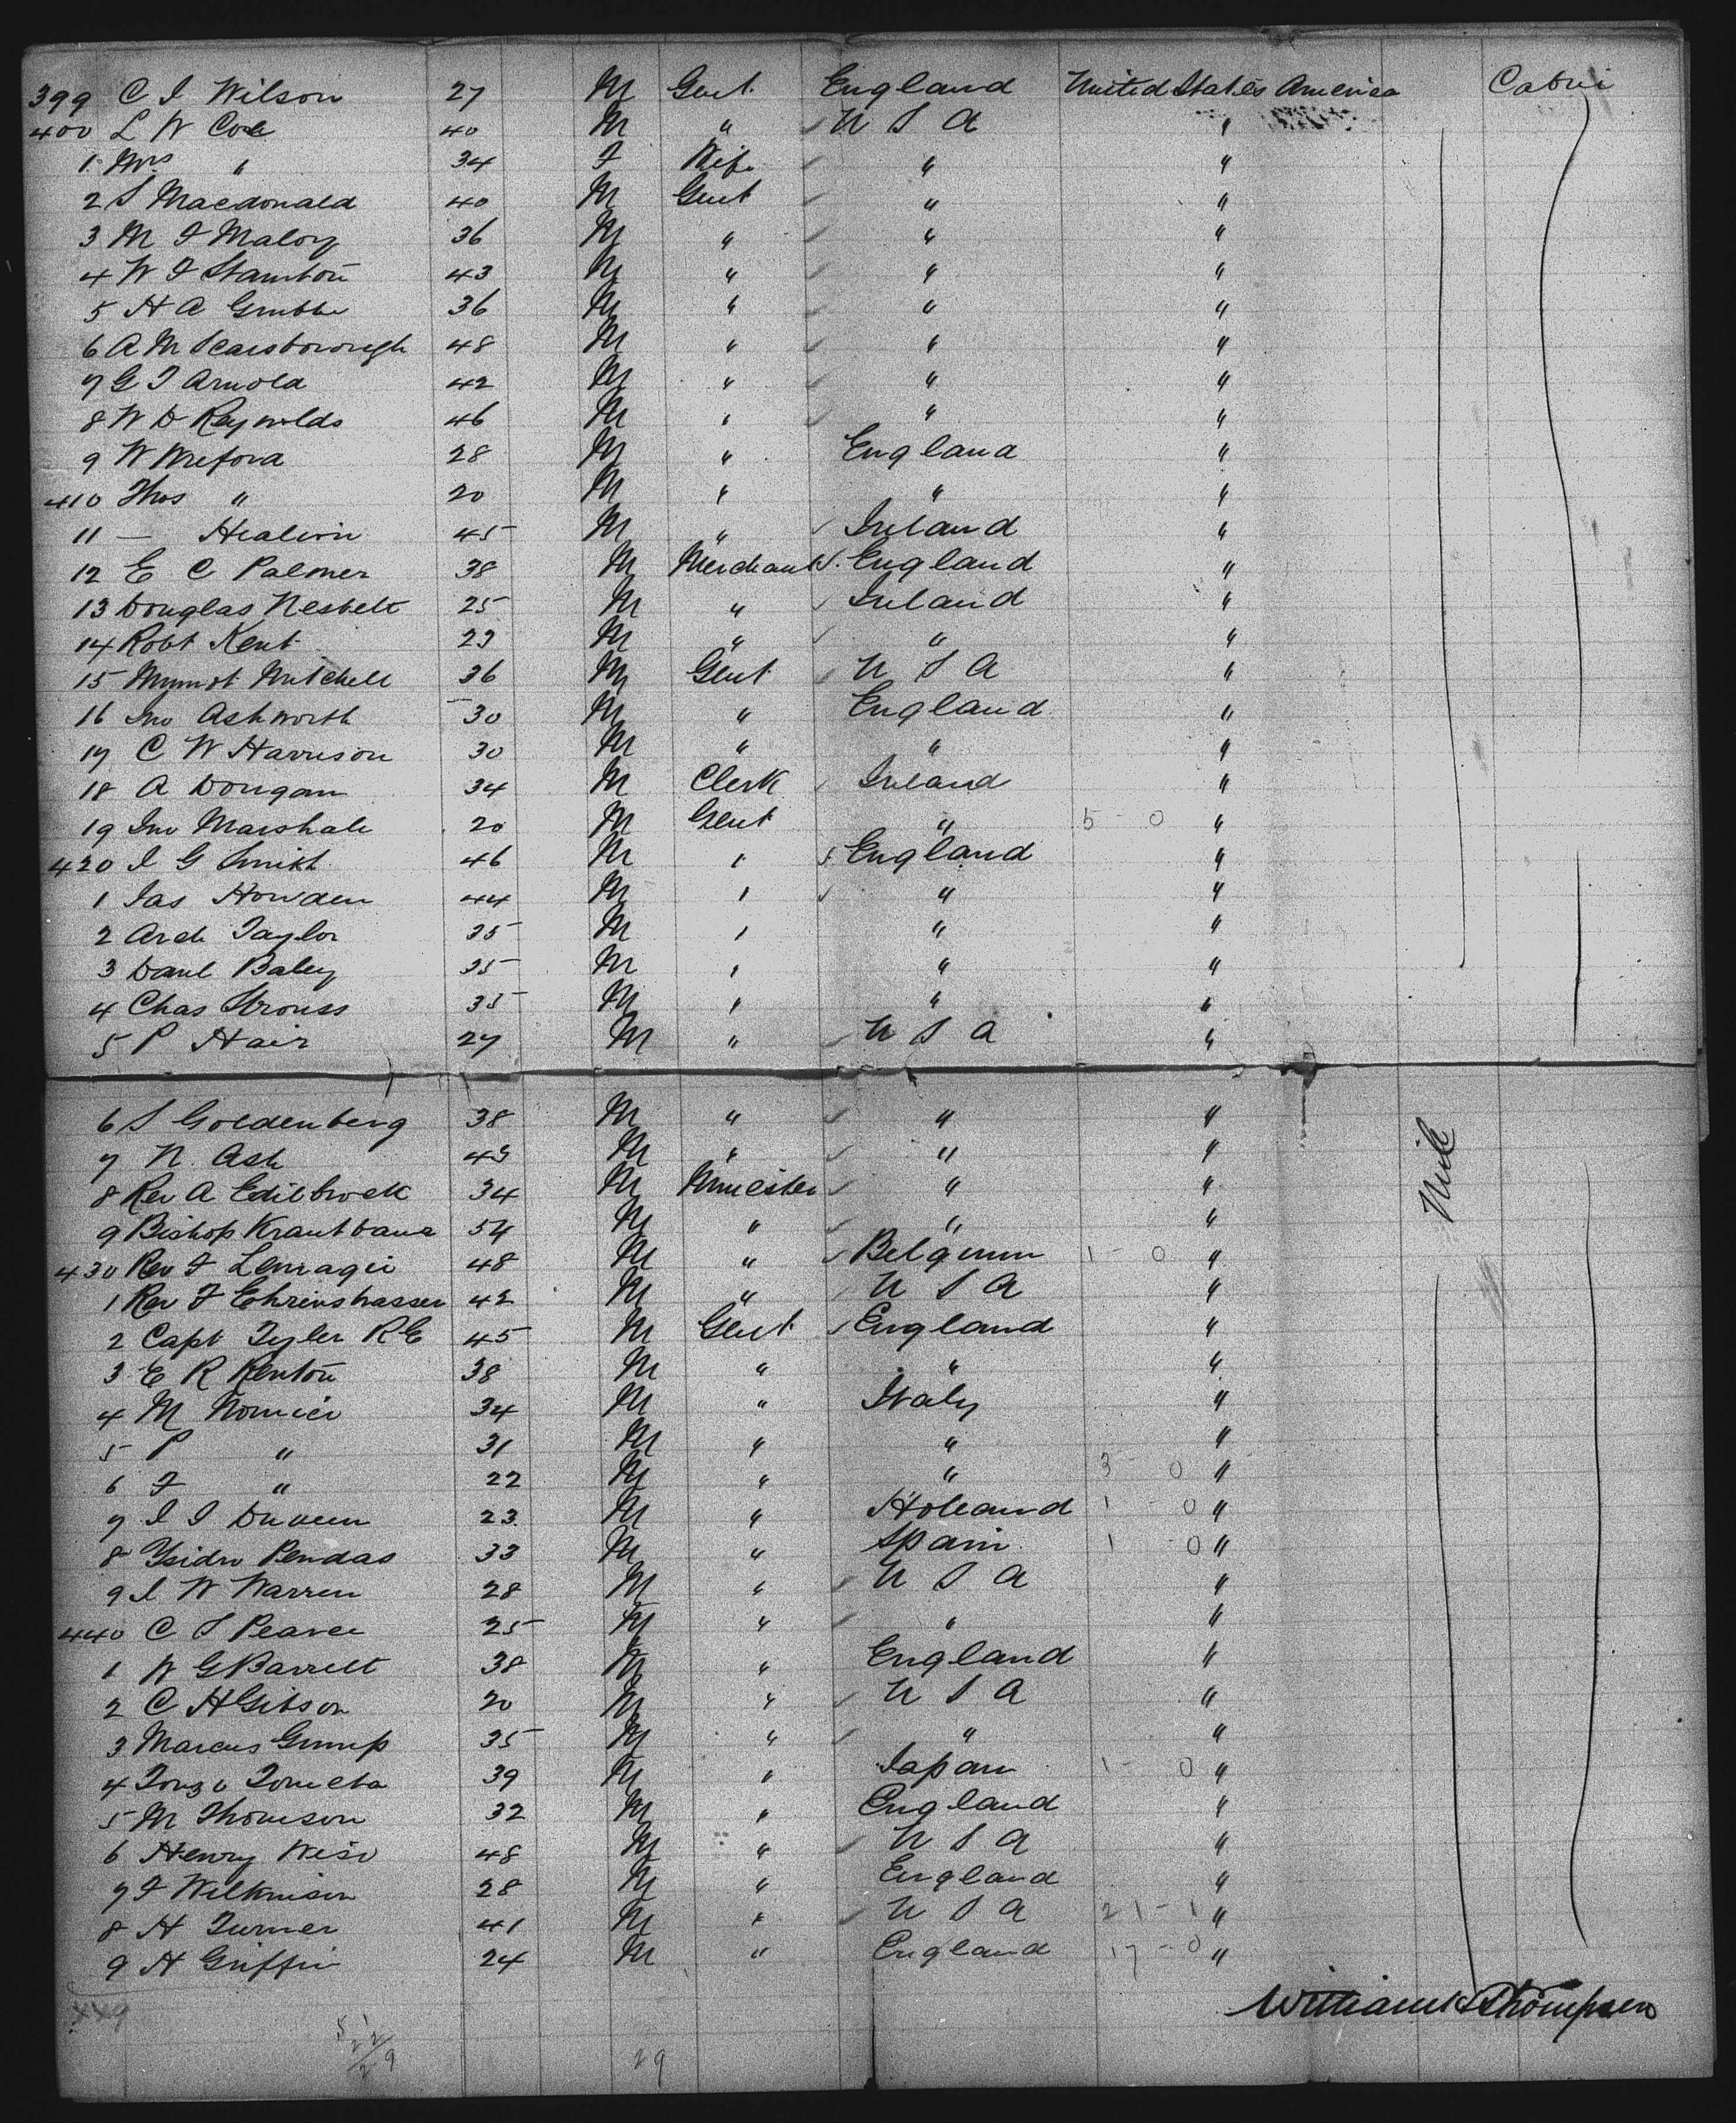 399 C I Wilson 27 M Gent England United States America Cabin
400 L W Cole 40 M " U S A "
1 Mrs " 34 F Wife " "
2 S Macdonald 40 M Gent " "
3 M F Maloy 36 M " " "
4 W F Stanton 43 M " " "
5 H A Grubbe 36 M " " "
6 A M Scarsborough 48 M " " "
7 G T Arnold 42 M " " "
8 W D Reynolds 46 M " " "
9 W Wreford 28 M " England "
410 Thos " 20 M " " "
11 — 45 M " Ireland "
12 E C Palmer 38 M Merchant England "
13 Douglas Nesbelt 25 M " Ireland "
14 Robt Kent 23 M " " "
15 Mitchell 36 M Gent U S A "
16 Jno Ashworth 30 M " England "
17 C W Harrison 30 M " " "
18 A Dougan 34 M Clerk Ireland "
19 Jno Marshall 20 M Gent " 5 - 0 "
420 I G Smith 46 M " England "
1 Jas Howden 44 M " " "
2 Arch Taylor 35 M " " "
3 Danl Baley 35 M " " "
4 Chas Strouss 35 M " " "
5 P Hair 27 M " U S A "
6 S Goldenberg 38 M " " "
7 N. Ash 43 M " " " Nil
8 Rev A Edilbrock 34 M Minister " "
9 Bishop Krautbaua 54 M " " "
430 Rev F Lemagie 48 M " Belgium 1 - 0 "
1 Rev F Ehrenstrasser 42 M " U S A "
2 Capt Tyler R E 45 M Gent England "
3 E R Kenton 38 M " " "
4 M 34 M " Italy "
5 P " 31 M " " "
6 F " 22 M " " 3 - 0 "
7 I I Duveen 23 M " Holland 1 - 0 "
8 Ysidro Pendas 33 M " Spain 1 - 0 "
9 I W Warren 28 M " U S A "
440 C S Pearce 25 M " " "
1 W G Barrett 38 M " England "
2 C H Gibson 20 M " U S A "
3 Marcus Gump 35 M " " "
4 39 M " Japan 1 - 0 "
5 M Thomson 32 M " England "
6 Henry Wise 48 M " U S A "
7 F Wilkinson 28 M " England "
8 H Turner 41 M " U S A 21 - 1 "
9 H Griffin 24 M " England 17 - 0 "
William Thompson
449
29